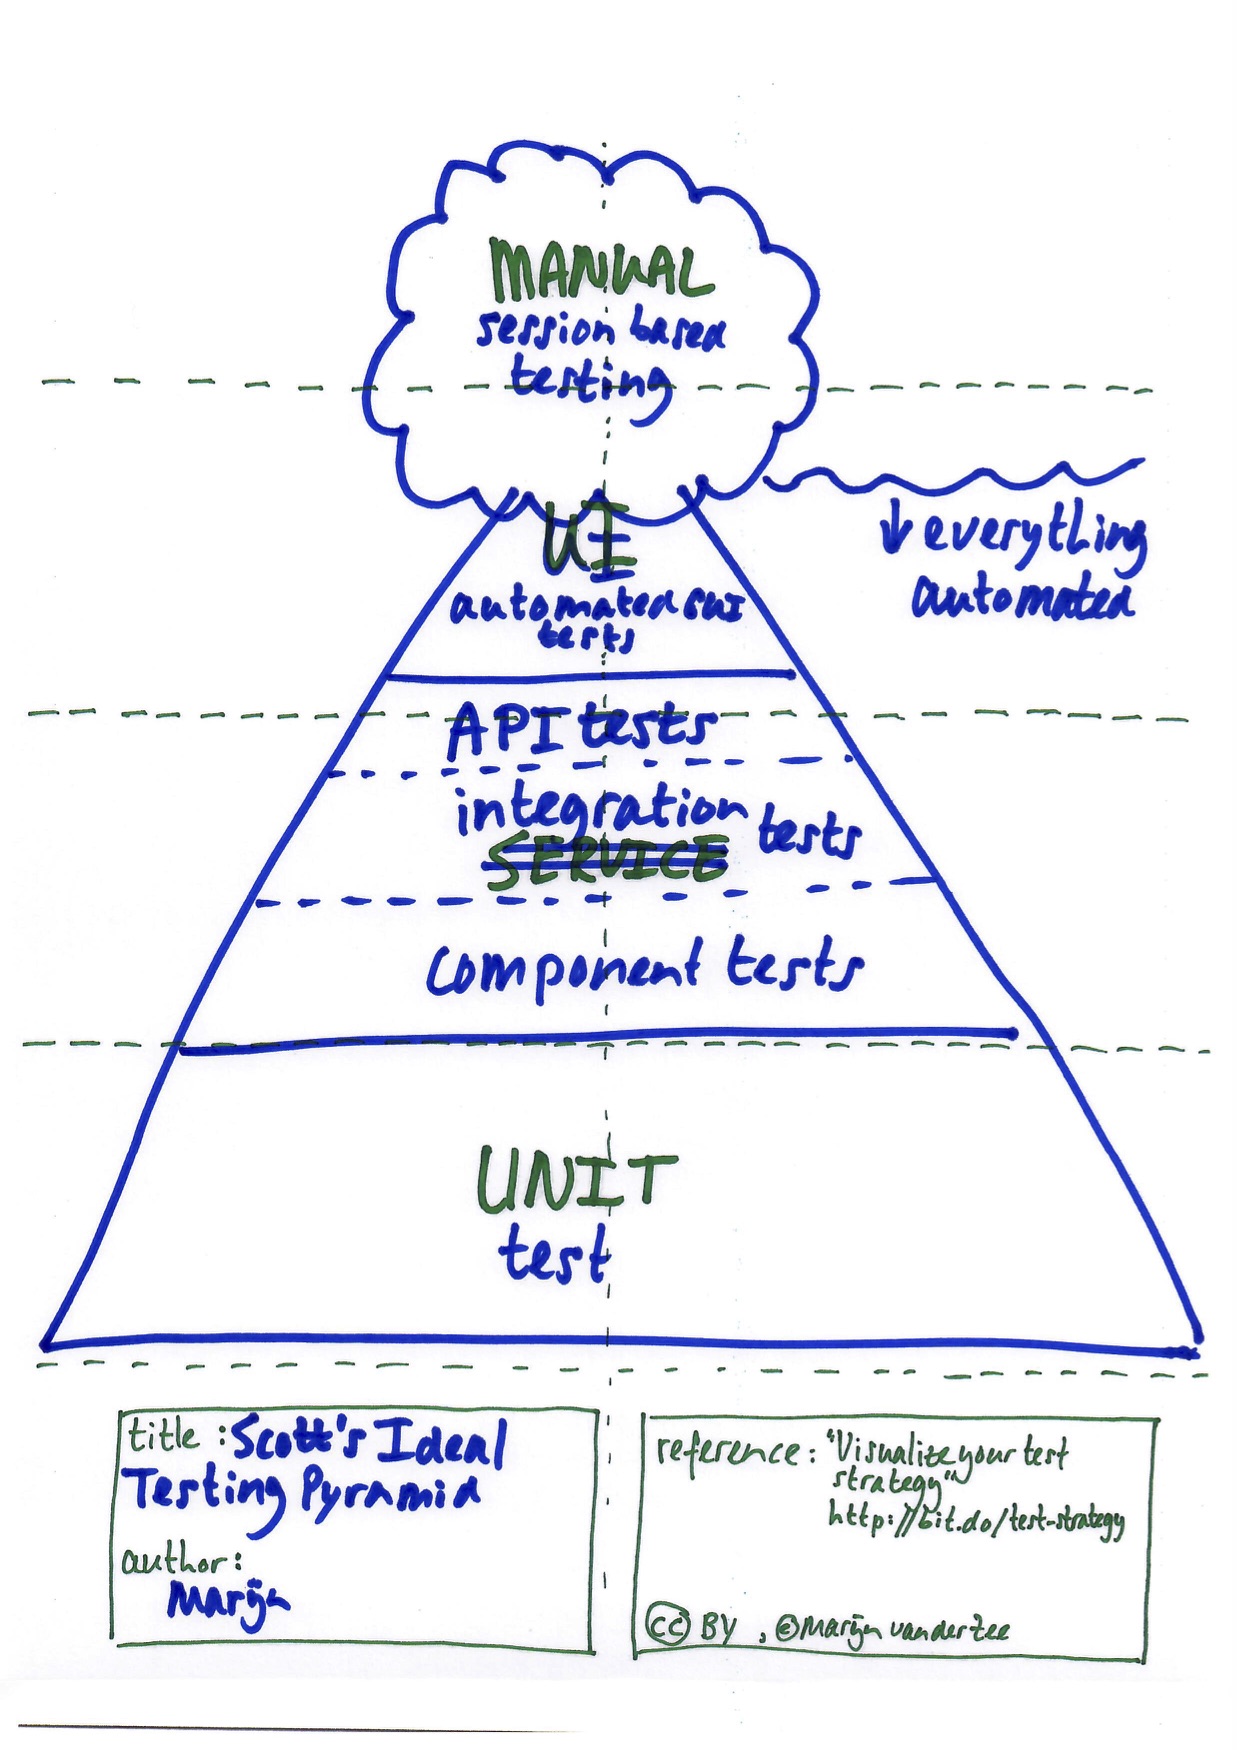 MANUAL
session based
testing
UI
↓ everything
automated
automated GUI
tests
API tests
integration tests
SERVICE
component tests
UNIT
test
title: Scott's Ideal
Testing Pyramid
author:
Marijn
reference: "Visualize your test
strategy"
http://bit.do/test-strategy
cc BY, @Marijn vanderzee